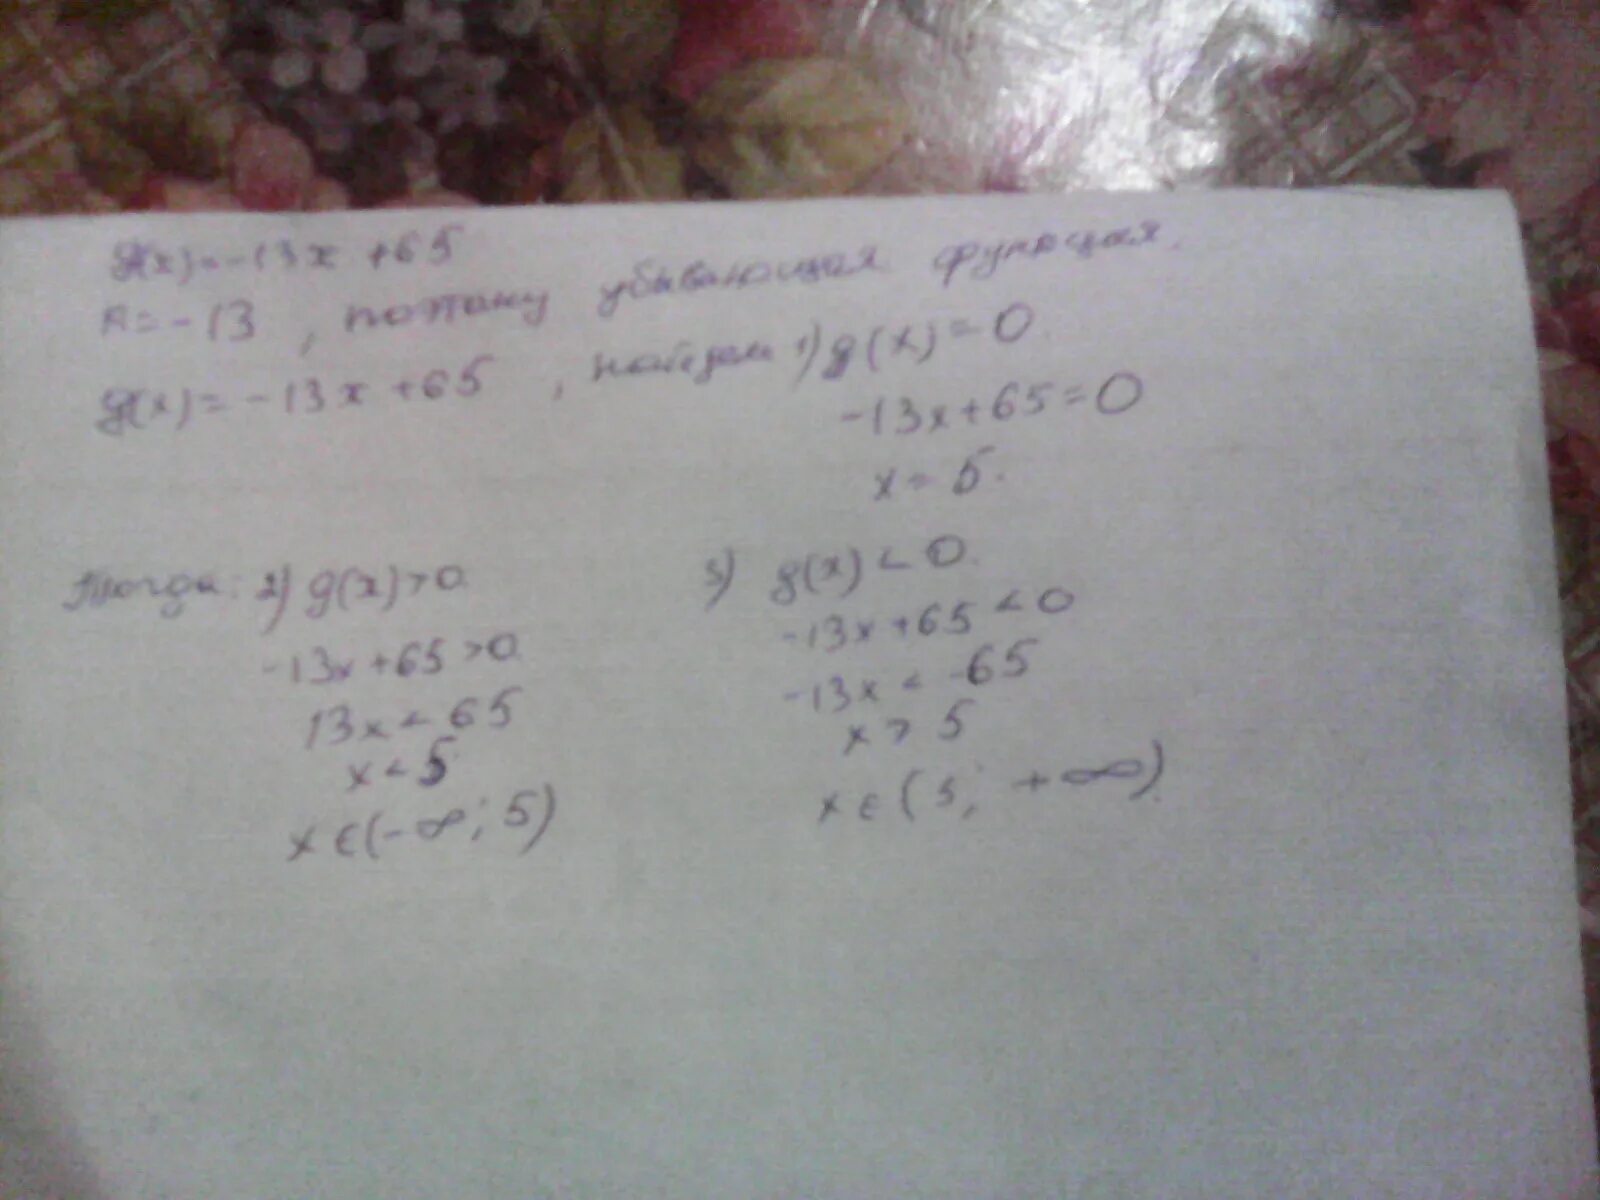 g(x) = -13x + 65
k = -13, поэтому убывающая функция.
g(x) = -13x + 65, найдем 1) g(x) = 0
-13x + 65 = 0
x = 5.
Тогда: 2) g(x) > 0
-13x + 65 > 0
13x < 65
x < 5
x ∈ (-∞; 5)
3) g(x) < 0
-13x + 65 < 0
-13x < -65
x > 5
x ∈ (5; +∞)